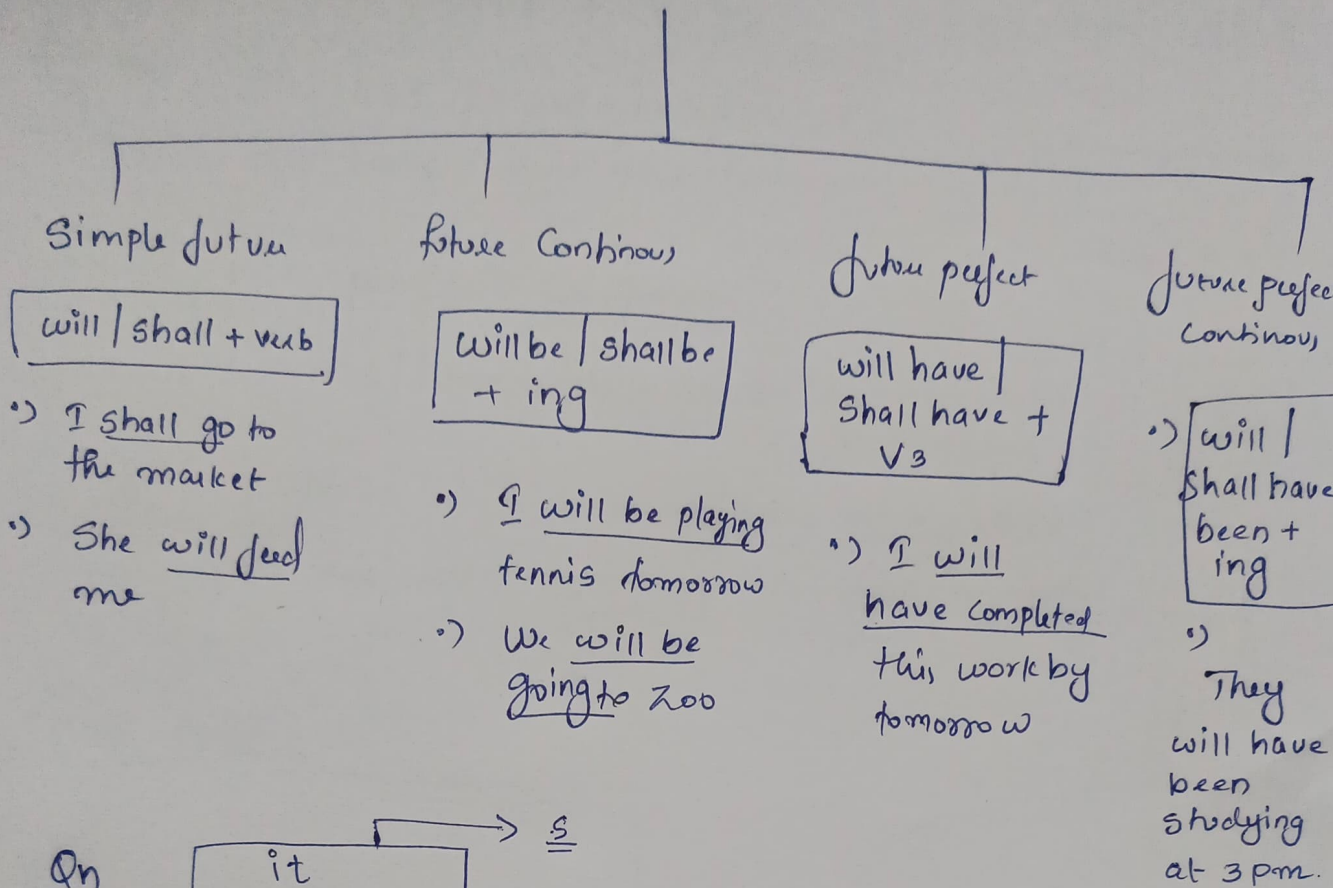 Simple future
will / shall + verb
•) I shall go to
the market
•) She will feed
me
future Continous
will be / shall be
+ ing
•) I will be playing
tennis tomorrow
•) We will be
going to Zoo
future perfect
will have /
Shall have +
V3
•) I will
have completed
this work by
tomorrow
future perfec
continous
•) will /
shall have
been +
ing
•)
They
will have
been
studying
at 3 pm.
s
Qn
it